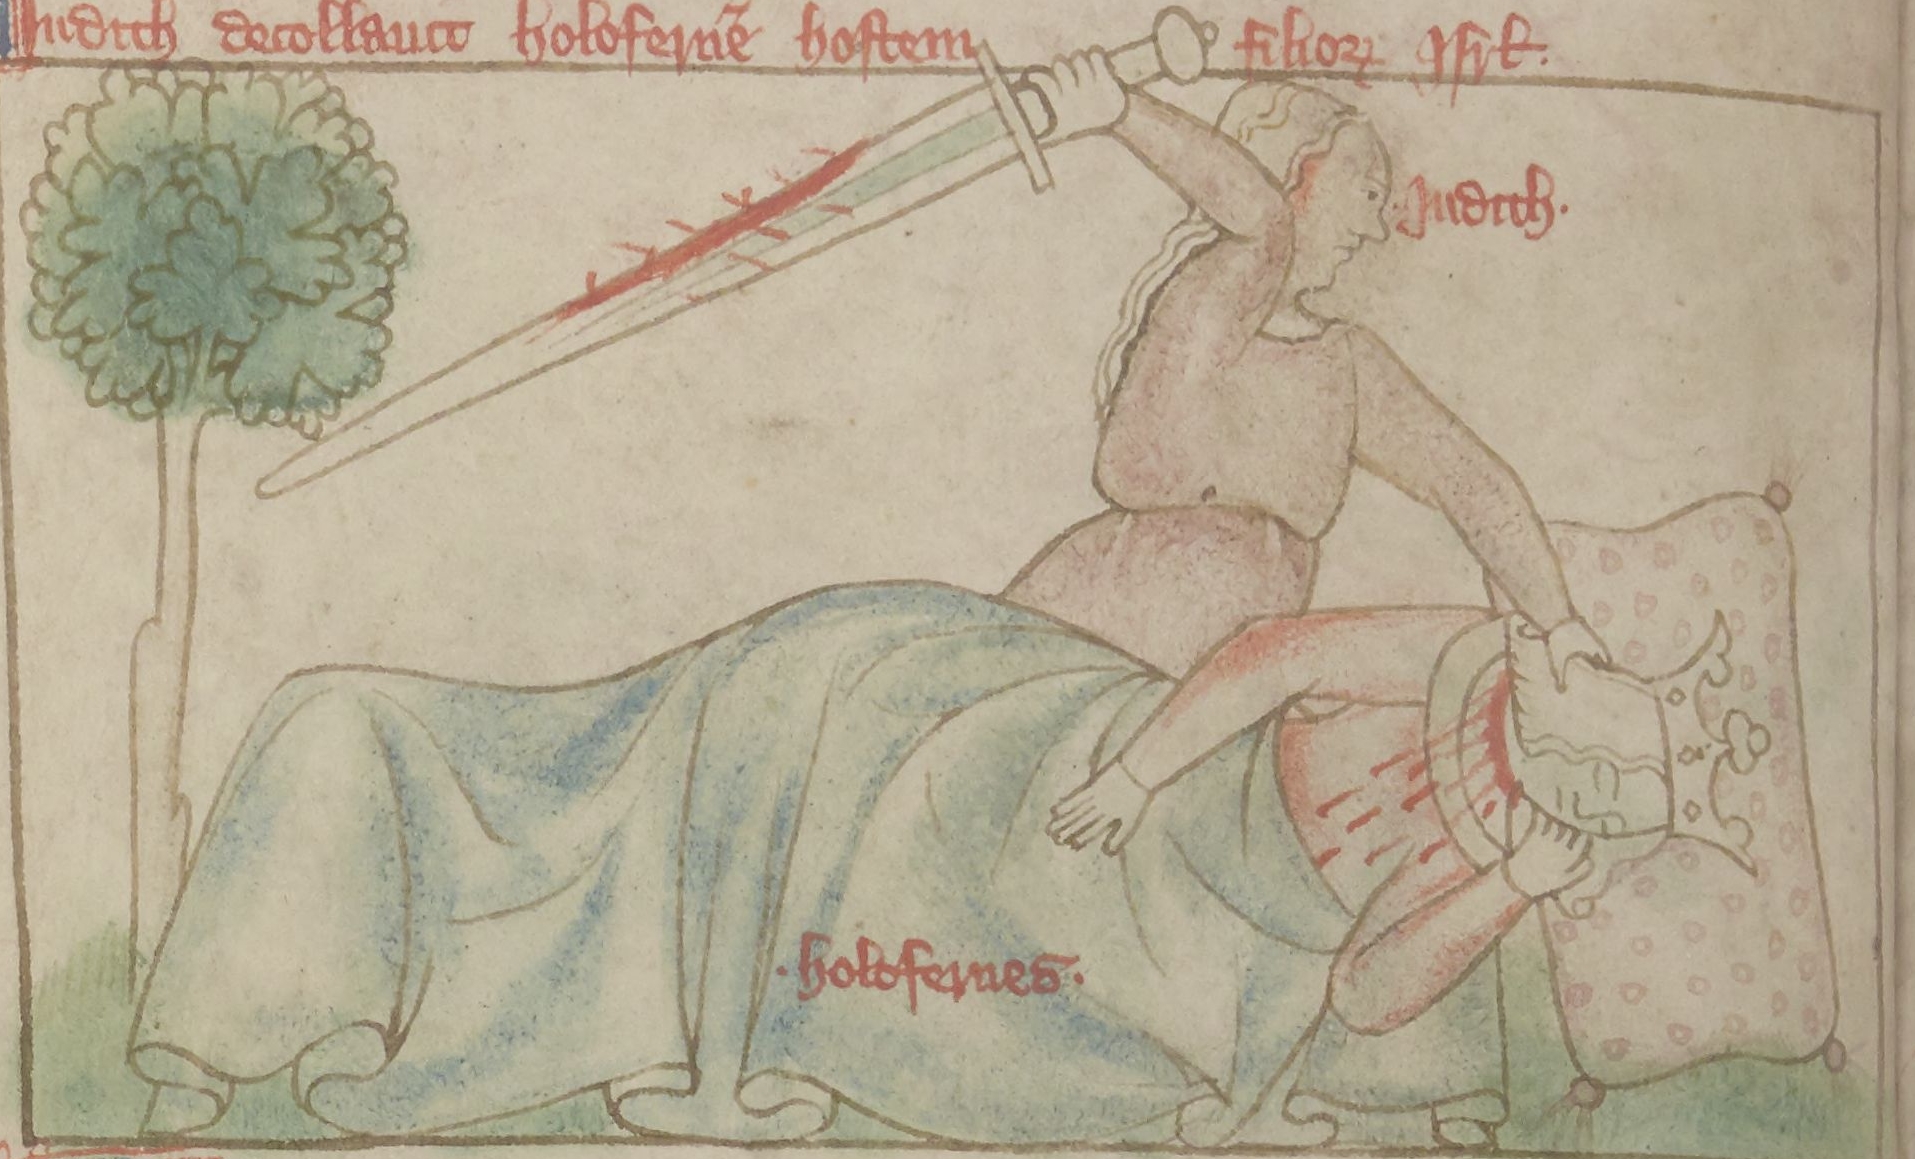 Judith decollauit holofernē hostem filioꝝ isrł.
·Judith·
·holofernes·